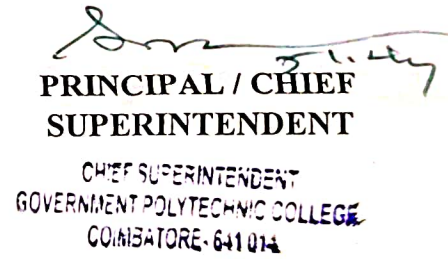 PRINCIPAL / CHIEF
SUPERINTENDENT
CHIEF SUPERINTENDENT
GOVERNMENT POLYTECHNIC COLLEGE
COIMBATORE - 641 014